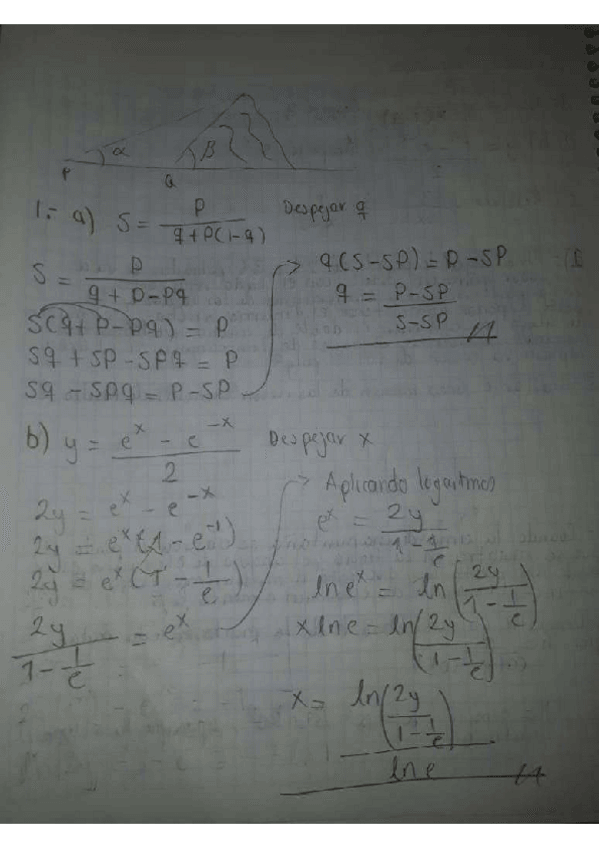 α
β
P
Q
1.- a) S = P / (q + P(1-q)) Despejar q
S = P / (q + P - Pq)
S(q + P - Pq) = P
Sq + SP - SPq = P
Sq - SPq = P - SP
q(S - SP) = P - SP
q = (P - SP) / (S - SP)
b) y = (e^x - e^-x) / 2 Despejar x
2y = e^x - e^-x
2y = e^x (1 - e^-1)
2y = e^x (1 - 1/e)
2y / (1 - 1/e) = e^x
Aplicando logaritmos
e^x = 2y / (1 - 1/e)
ln e^x = ln(2y / (1 - 1/e))
x ln e = ln(2y / (1 - 1/e))
x = ln(2y / (1 - 1/e)) / ln e